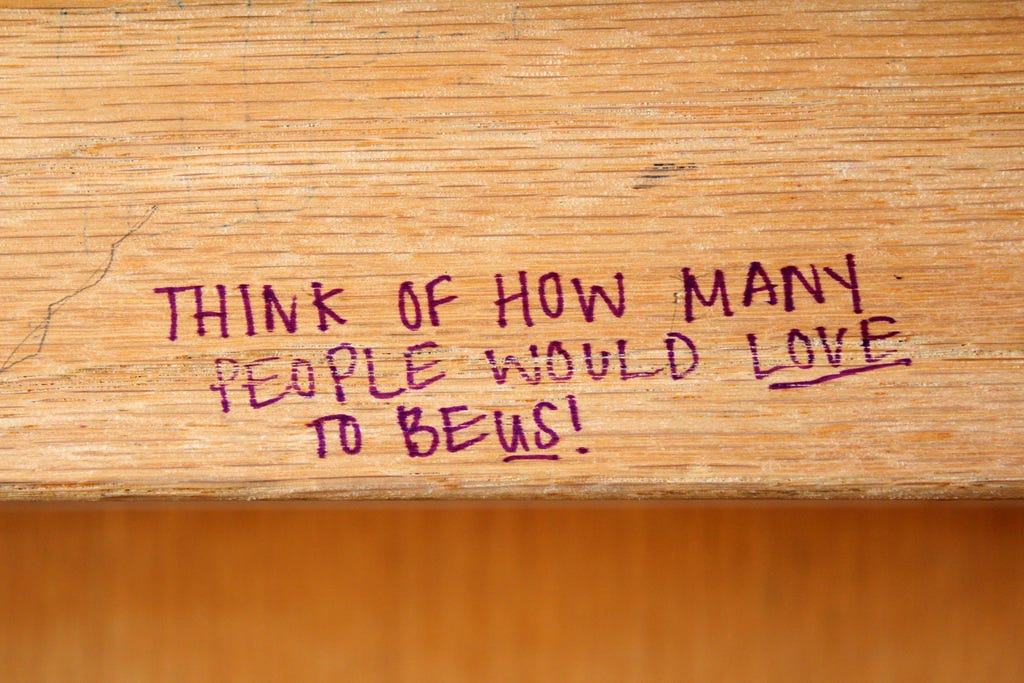 THINK OF HOW MANY
PEOPLE WOULD LOVE
TO BE US!